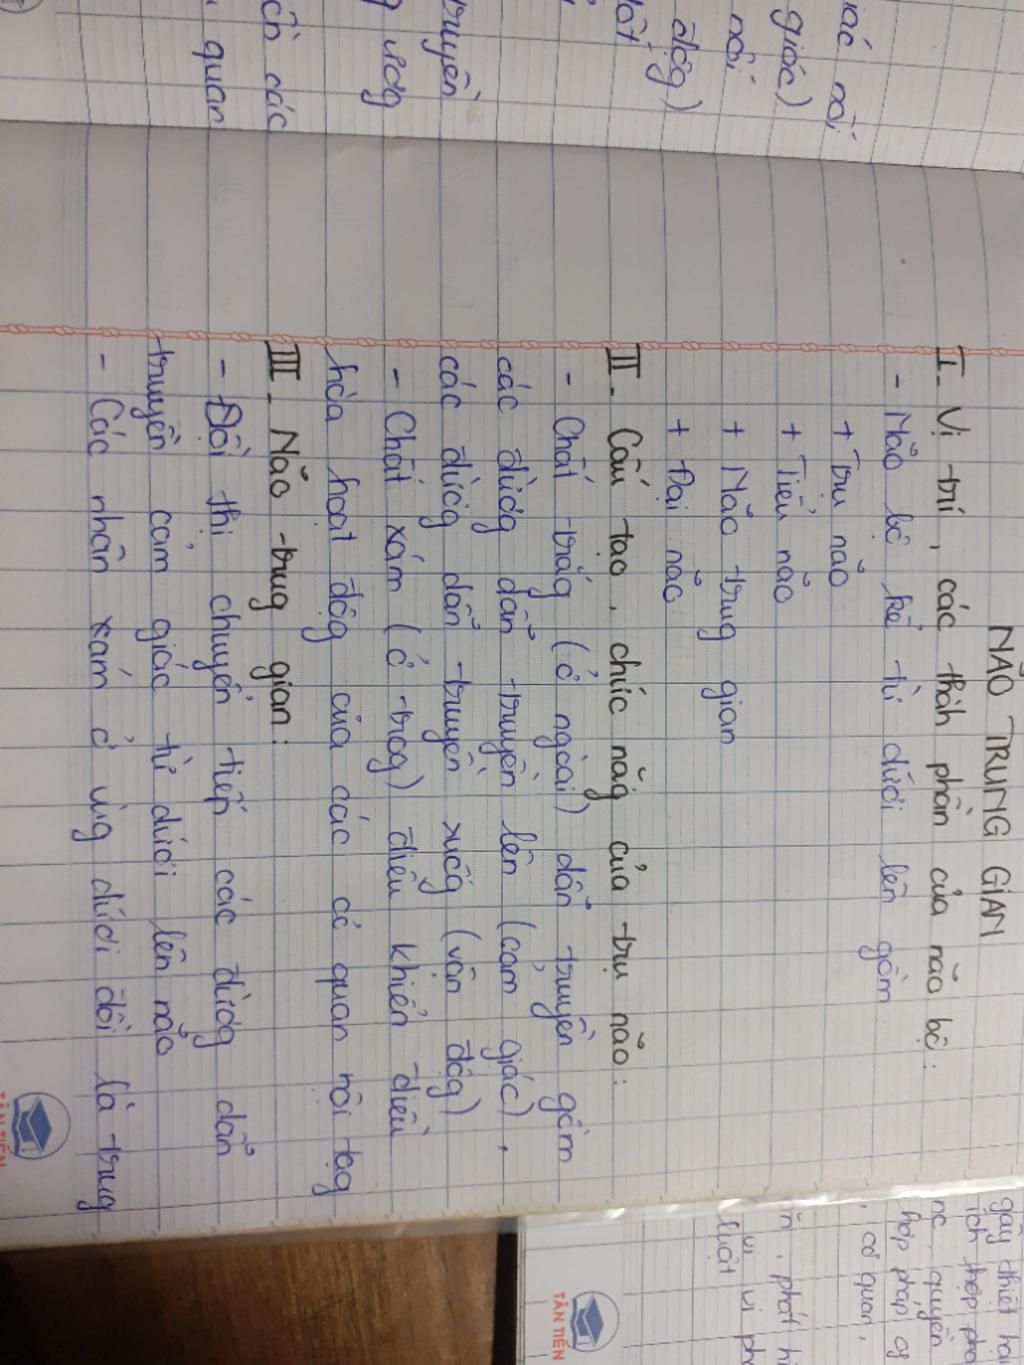 NÃO TRUNG GIAN
I. Vị trí, các thàh phần của não bộ:
- Não bộ kể từ dưới lên gồm
+ Trụ não
+ Tiểu não
+ Não trug gian
+ Đại não
II. Cấu tạo, chức năg của trụ não:
- Chất trắg (ở ngoài) dẫn truyền gồm
các đườg dẫn truyền lên (cảm giác),
các đườg dẫn truyền xuốg (vận độg)
- Chất xám (ở trog) điều khiển điều
hòa hoạt độg của các cơ quan nội tạg
III. Não trug gian:
- Đồi thị chuyển tiếp các đườg dẫn
truyền cảm giác từ dưới lên não
- Các nhân xám ở vùg dưới đồi là trug
TÂN TIẾN
các nơi
giác)
nơi
độg)
truyền
g ươg
các
quan
gây thiệt hại
ích hợp
quyền
hợp pháp
, cơ quan,
, phát
vi
luật
TÂN TIẾN